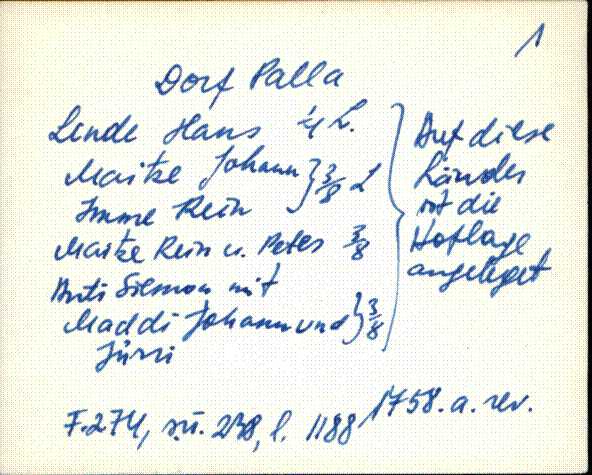 1
Dorf Palla
Lende Hans 1/4 L.
Maitze Johann } 3/8 L
Imme Rein
Maitze Rein u. Peter 3/8
Anti Siemon mit
Maddi Johann und } 3/8
Jürri
Auf diese
Länder
ist die
Hoflage
angeleget
F. 274, nü. , l. 1188
1758. a. rev.